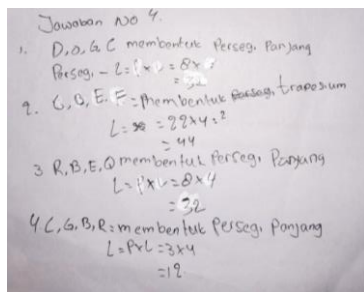 Jawaban No 4.
1. D,a,G C membentuk Perseg. Panjang
Perseg. - L = P x L = 8 x 4
= 32
2. C, B, E. F = Membentuk traposium
L = = 22 x 4 : 2
= 44
3 R, B, E, Q membentuk Perseg. Panjang
L = P x L = 8 x 4
= 32
4 C, G, B, R = membentuk Perseg. Panjang
L = P x L = 3 x 4
= 12